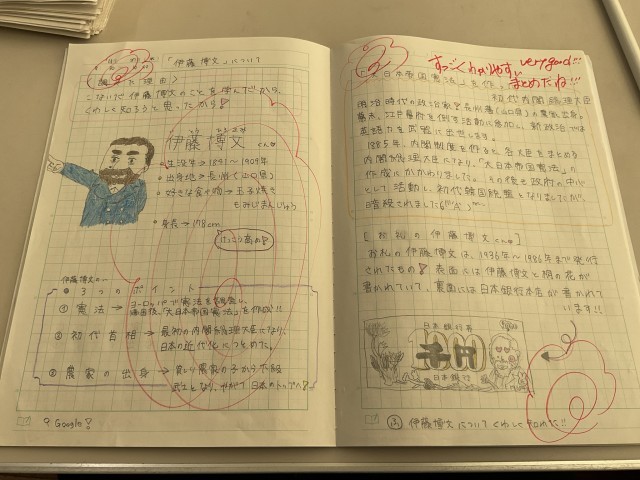 「伊藤博文」について
こないだ伊藤博文のことを学んだから、
くわしく知ろうと思ったから!
伊藤 博文くん
・生没年→1841〜1909年
・出身地→長州(山口県)
・好きな食べ物→玉子焼き
もみじまんじゅう
・身長→178cm
けっこう高め!
伊藤博文の
3つのポイント
① 憲法→ヨーロッパで憲法を勉強し、
帰国後、「大日本帝国憲法」を作成!!
② 初代首相→最初の内閣総理大臣になり、
日本の近代化につとめた。
③ 農家の出身→貧しい農家の子から下級
武士となり、やがて日本のトップへ!
Google!
すっごくわかりやすい very good!!
まとめだね!!!
「大日本帝国憲法」を作った
初代内閣総理大臣
明治時代の政治家。長州藩(山口県)の農家出身。
幕末、江戸幕府を倒す活動に参加し、新政府では
英語力を武器に出世します。
1885年、内閣制度を作ると、各大臣をまとめる
内閣総理大臣になり、「大日本帝国憲法」の
作成にかかわりました。その後も政府の中心
として活動し、初代韓国統監となりましたが、
暗殺されました
[お札の伊藤博文くん]
お札の伊藤博文は、1936年〜1986年まで発行
されたもの! 表面には伊藤博文と桐の花が
書かれていて、裏面には日本銀行本店が書かれて
います!!
日本銀行券
1000
千円
日本銀行
伊藤博文についてくわしく知れた!!